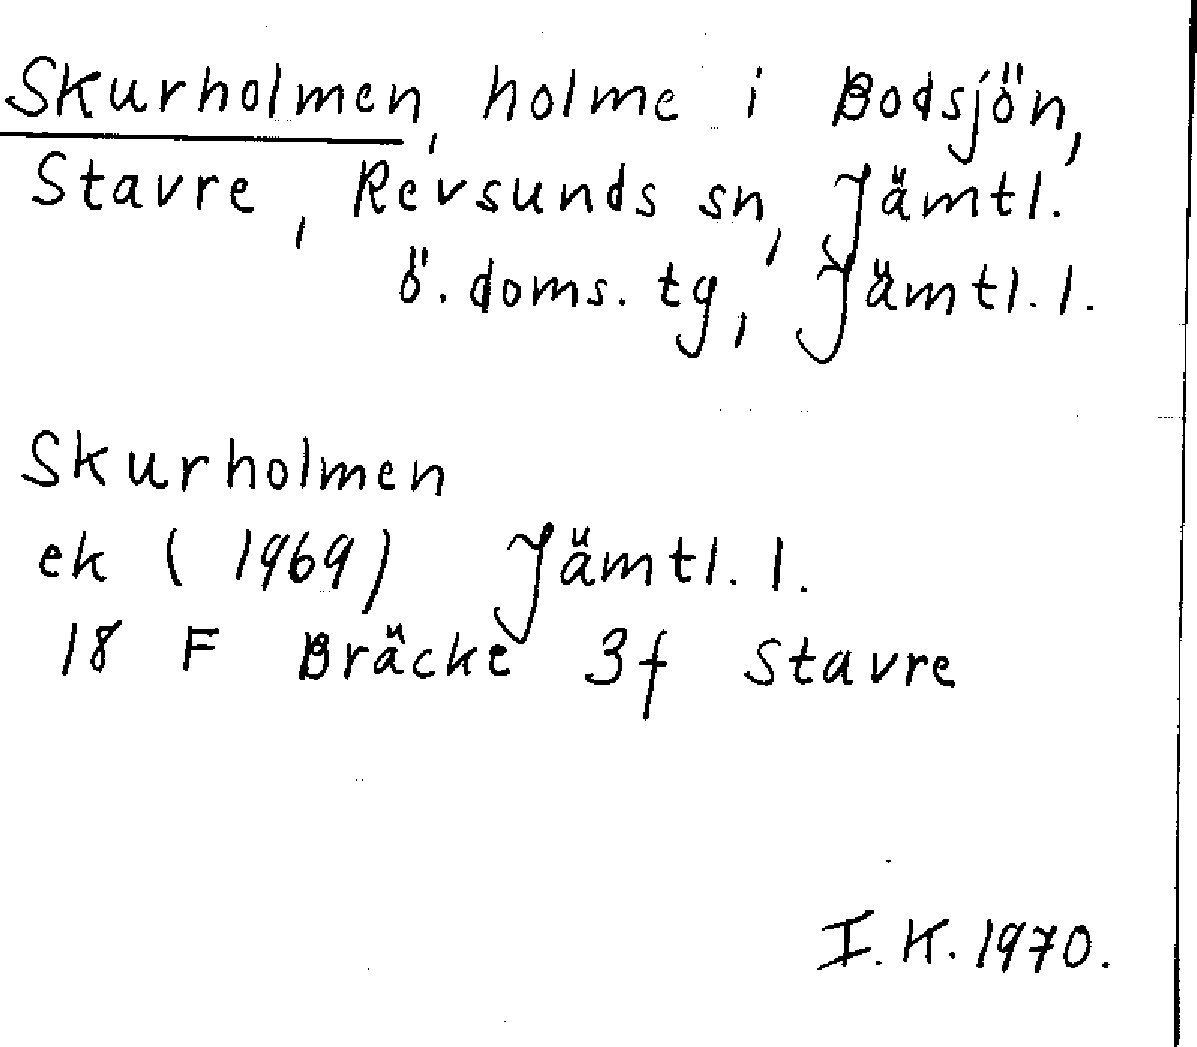 Skurholmen, holme i Bodsjön,
Stavre, Revsunds sn, Jämtl.
ö. doms. tg, Jämtl. l.
Skurholmen
ek (1969) Jämtl. l.
18 F Bräcke 3f Stavre
I. K. 1970.